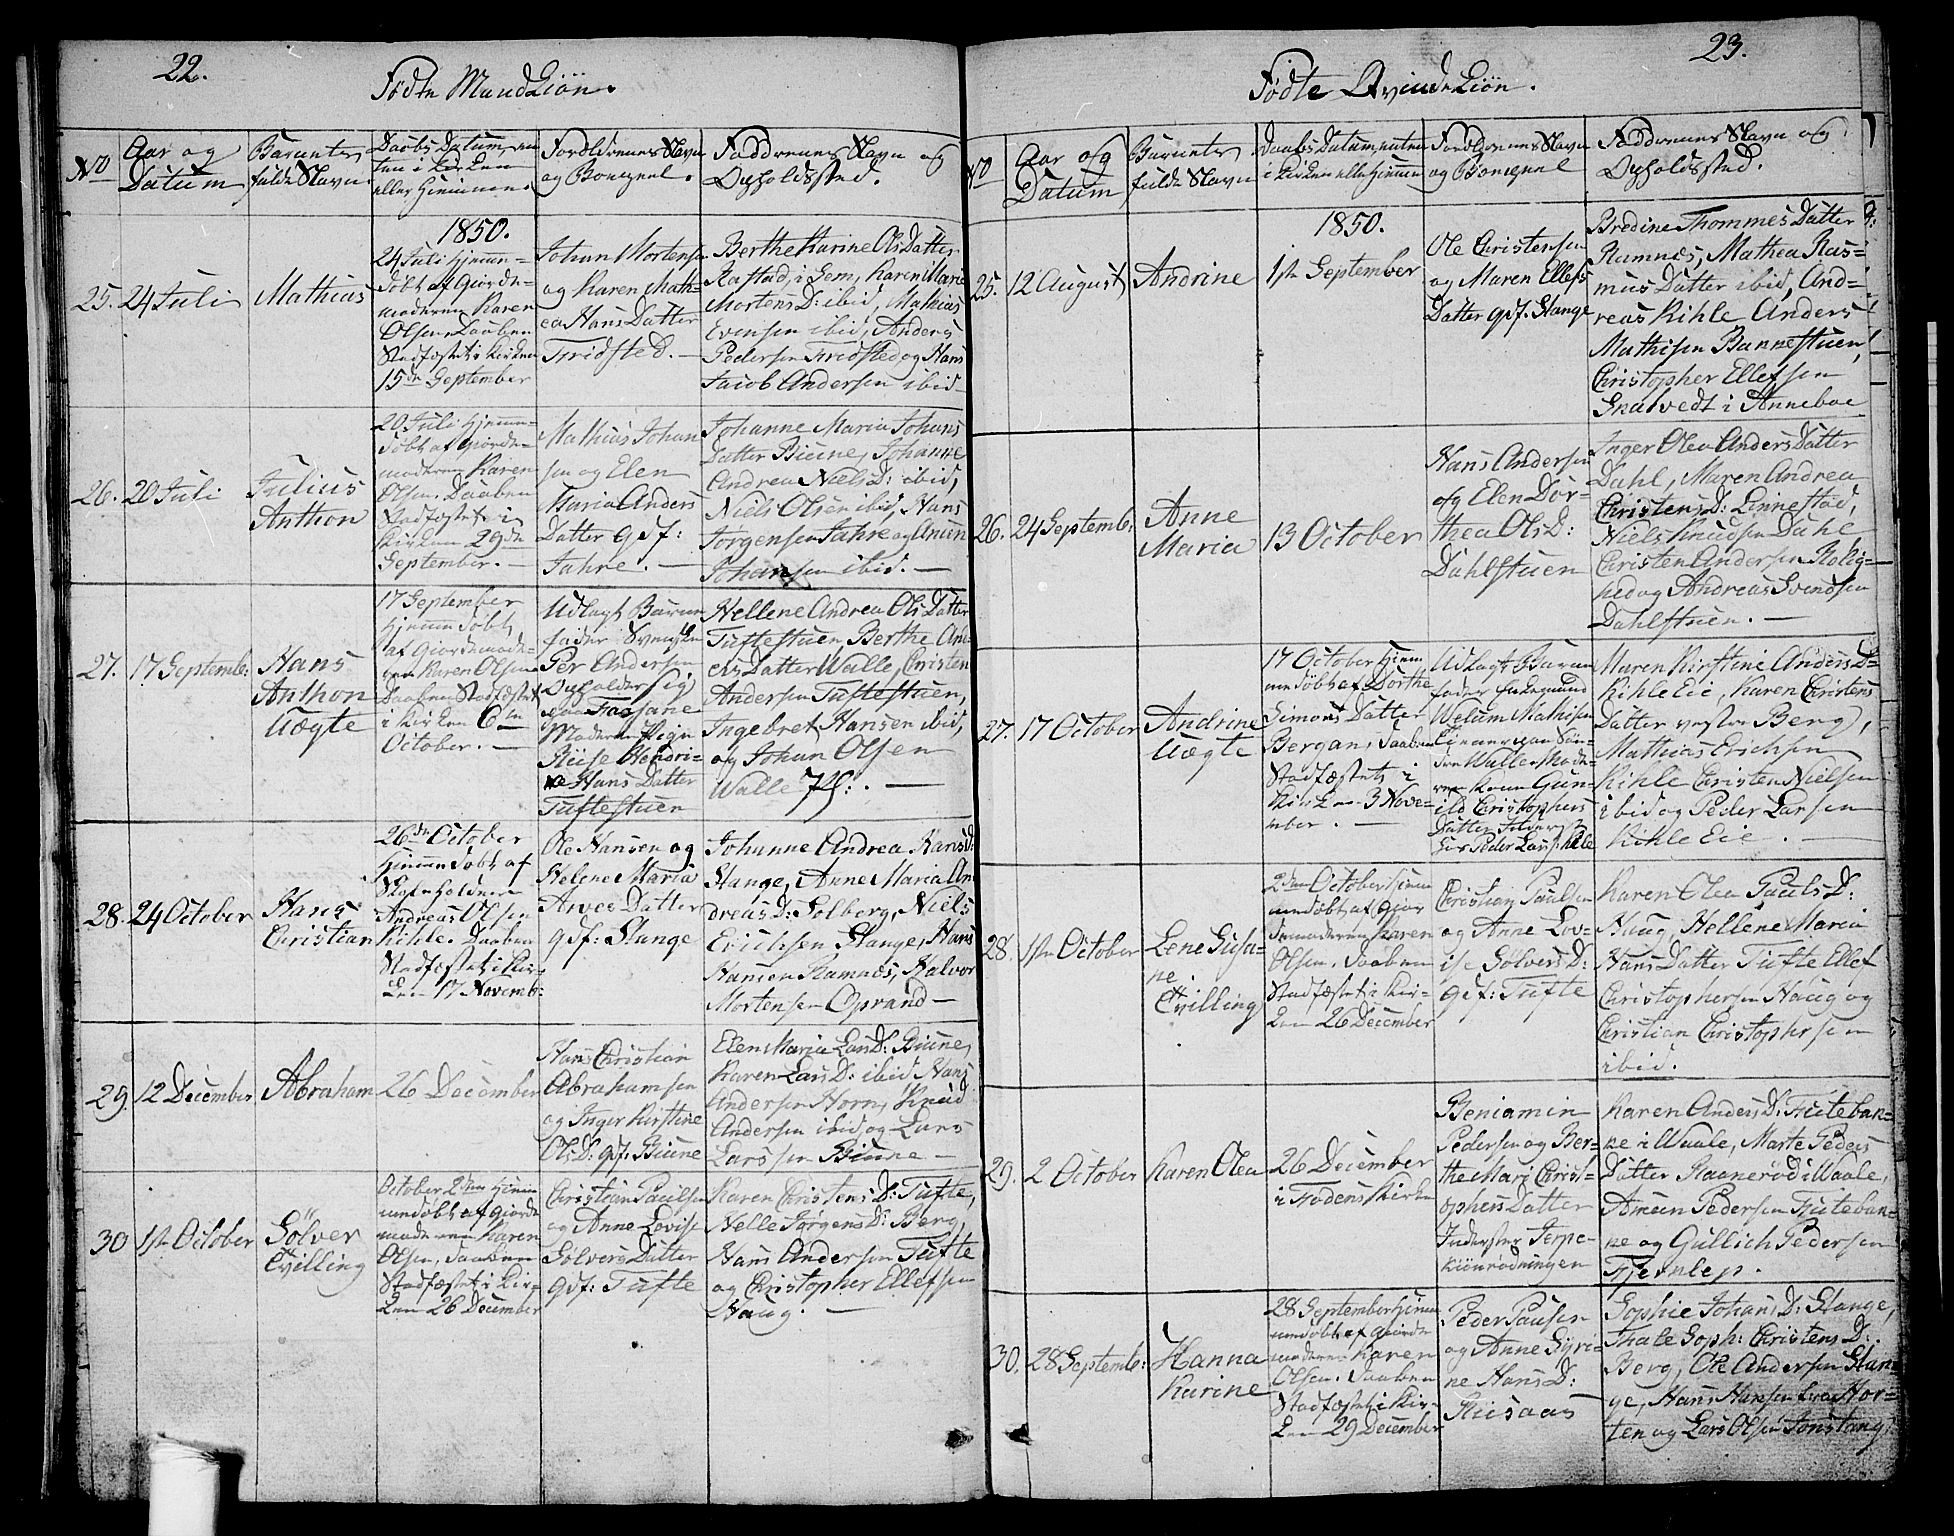 22.
Fødte Mandkiön.
No
Aar og
Datum
Barnets
fulde Navn.
Daabs Datum, en
ten i Kirken
eller Hjemme.
Forældrenes Navn
og Boepæl.
Faddrenes Navn og
Opholdssted.
1850.
25. 24 Juli
Mathias
24 Juli Hjemme
døbt af Giorde-
moderen Karen
Olsen, Daaben
Stadfæstet i Kirken
15de September
Johan Mortensen
og Karen Math-
ea Hans Datter
Fridsted. —
Berthe Karine Ols Datter
Rastad, i Sem, Karen Marie
Mortens D: ibid, Mathias
Evensen ibid, Anders
Pedersen Fridsted og Hans
Jacob Andersen ibid
26. 20 Juli
Julius
Anthon
20 Juli Hjemme
døbt af Giorde-
moderen Karen
Olsen, Daaben
Stadfæstet i
Kirken 29de
September. —
Mathias Johan
sen og Elen
Maria Anders
Datter gdf:
Jahre. —
Johanne Maria Johans
Datter Biune, Johanne
Andrea Niels D: ibid,
Niels Olsen ibid, Hans
Jørgensen Jahre og
Johansen ibid. —
27. 17 Septemb:
Hans
Anthon
Uægte
17 September
Hjemme døbt
af Giordemode-
ren Karen Olsen
Daaben Stadfæstet
i Kirken 6te
October. —
Udlagt Barne
fader Svensken
Per Andersen
Opholder sig
Moderen Pigen
Hendri-
ke Hans Datter
Tuftestuen
Hellene Andrea Ols Datter
Tuftestuen, Berthe And-
ers Datter Walle, Christen
Andersen Tuftestuen,
Ingebret Hansen ibid,
og Johan Olsen
Walle —
28. 24 October
Hans
Christian
26de October
Hjemme døbt af
Skoleholderen
Andreas Olsen
Kihle. Daaben
Stadfæstet i Kir-
ken 17 Novemb:
Ole Hansen og
Helene Maria
Arves Datter
gdf: Slange
Johanne Andrea Hans D:
Slange, Anne Maria An-
dreas D: Solberg, Niels
Erichsen Slange, Hans
Hansen Ramnæs, Halvor
Mortensen Oprand —
29. 12 December
Abraham
26 December
Hans Christian
Abrahamsen
og Inger Kirstine
Ols D: gdf. Biune
Elen Maria Lars D: Biune,
Karen Lars D: ibid Hans
Andersen Horn, Knud
Andersen ibid og Lars
Larssen Biune —
30 1ste October
Sölver
Tvilling
October 2den Hjem
medøbt af Giorde
moderen Karen
Olsen, Daaben
Stadfæstet i Kir-
ken 26 December
Christian Paulsen
og Anne Lovise
Sölvers Datter
gdf: Tufte
Karen Christens D: Tufte,
Nelle Jørgens D: Berg,
Hans Andersen Tufte
og Christopher Ellefsen
Haug. —
23.
Fødte Qvindekiön.
No
Aar og
Datum
Barnets
fulde Navn
Daabs Datum, enten
i Kirken eller Hjemme
Forældrenes Navn
og Boepæl
Faddrenes Navn og
Opholdssted.
1850.
25. 12 August
Andrine
1ste September
Ole Christensen
og Maren Ellefs
Datter gdf. Slange
Bredine Thommes Datter
Ramnæs, Mathea Ras-
mus Datter ibid, And-
reas Kihle Anders
Mathisen Bannestuen,
Christopher Ellefsen
Snatvedt i Anneboe
26. 24 Septemb:
Anne
Maria
13 October
Hans Andersen
og Elen Dor-
thea Ols D:
Dahlstuen
Inger Olea Anders Datter
Dahl, Maren Andrea
Christens D: Linnestad,
Niels Knudsen Dahl
Christen Andersen Rolig-
hed og Andreas Svendsen
Dahlstuen. —
27. 17 October
Andrine
Uægte
17 October Hjem
me døbt af Dorthe
Simons Datter
Bergan, Daaben
Stadfæstet i
Kirken 3 Nove-
mber. —
Udlagt Barne
fader
Welum Mathisen
Tjener paa Søn-
dre Walle Mode-
ren Kone Gun-
ild Christophers
Datter
Peder Lars: Kihle
Maren Kirstine Anders D:
Kihle Eie, Karen Christens
Datter vestre Berg,
Mathias Erichsen
Kihle Christen Nielsen
ibid og Peder Larsen
Kihle Eie. —
28. 1ste October
Lene Susa-
ne
Tvilling
2den October Hjem
medøbt af Gior
demoderen Karen
Olsen, Daaben
Stadfæstet i Kir-
ken 26 December
Christian Paulsen
og Anne Lov-
ise Sölvers D:
gdf: Tufte
Karen Olea Pauls D:
Haug, Hellene Maria
Hans Datter Tufte Ellef
Christophersen Haug og
Christian Christophersen
ibid.
29. 2 October
Karen Olea
26 December
i Fodens Kirke
Beniamin
Pedersen og Ber-
the Mari Christ-
ophers Datter
Inderster
Karen Anders D:
i Waale, Marte Peders
Datter i Waale,
Pedersen
og Gullich Pedersen
30. 28 Septemb:
Hanna
Karine
28 September Hjem
medøbt af Giorde
moderen Karen
Olsen. Daaben
Stadfæstet i Kir-
ken 29 December
Peder Paulsen
og Anne Syri-
ne Hans D:
Riisaas
Sophie Johans D: Slange,
Thale Soph: Christens D:
Berg, Ole Andersen Slan-
ge, Hans Hansen Hor-
ten og Lars Olsen